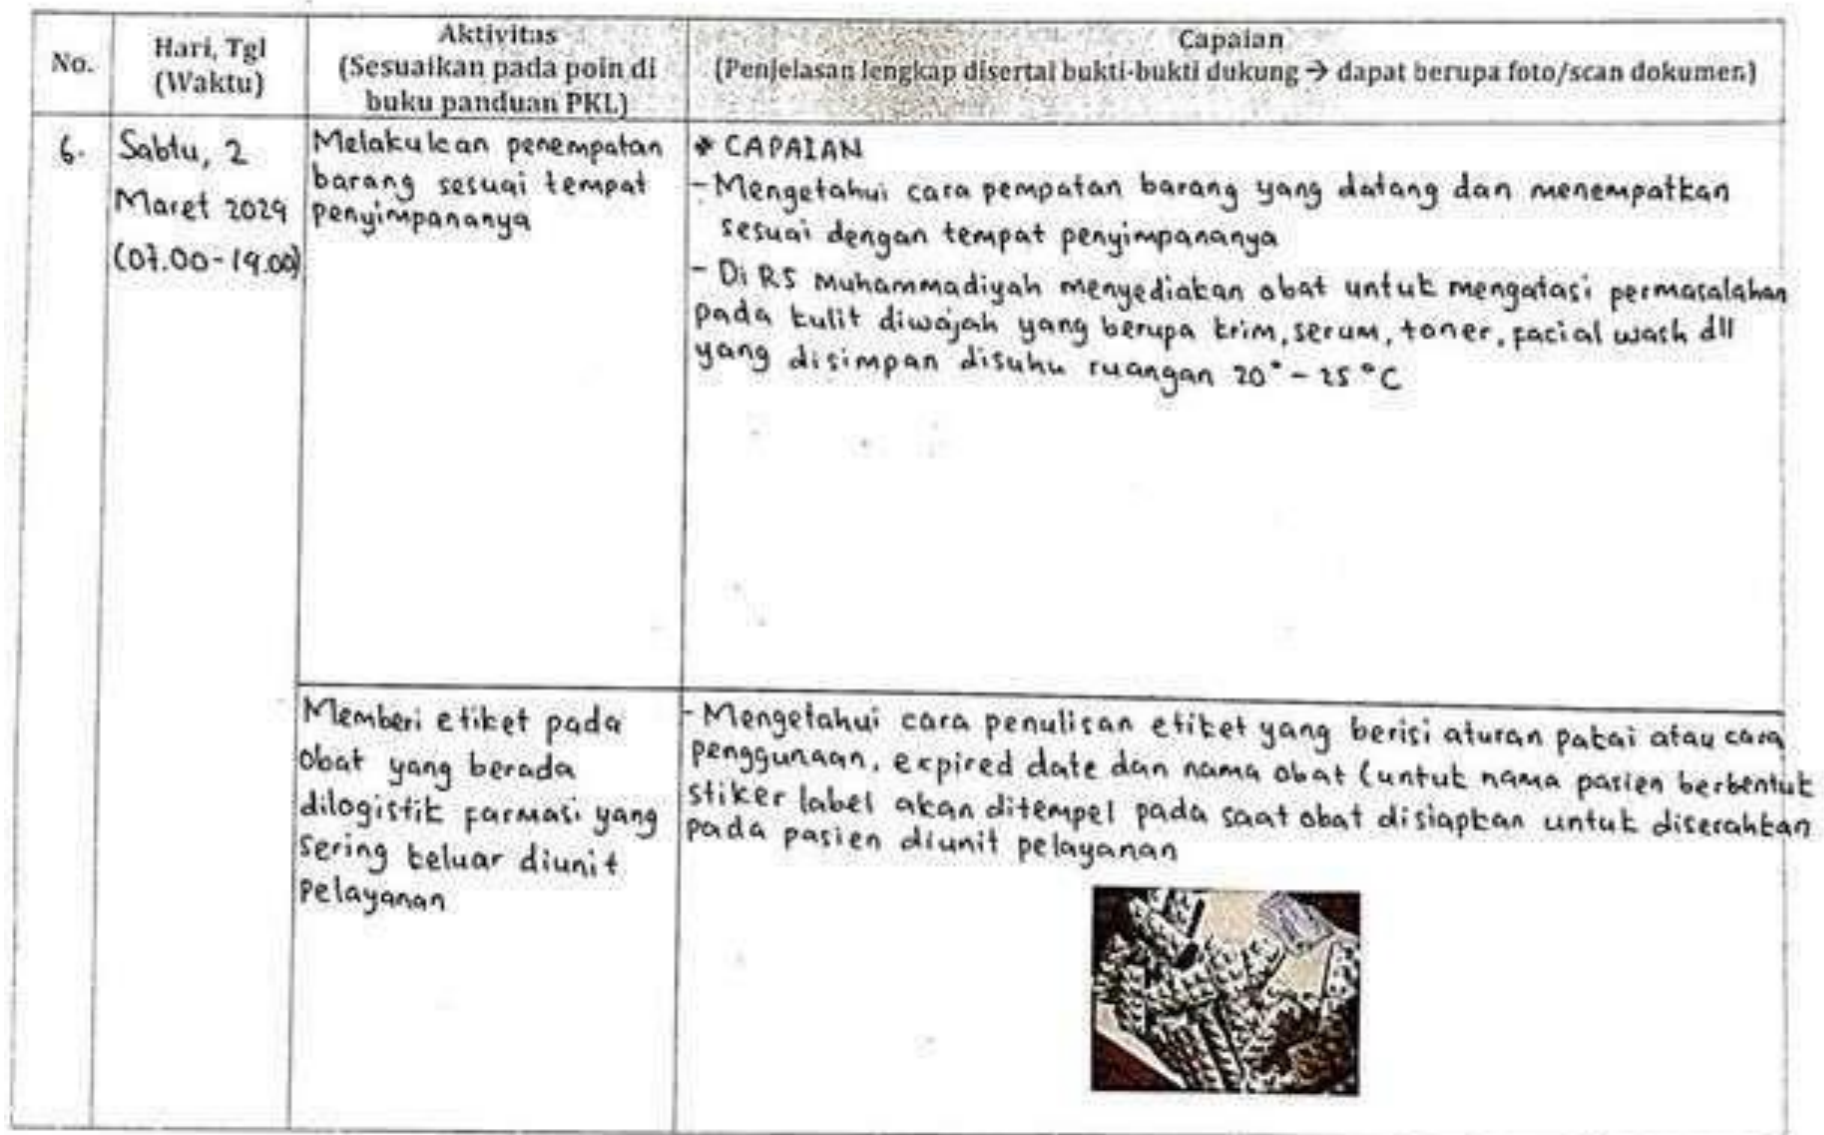 No.
Hari, Tgl
(Waktu)
Aktivitas
(Sesuaikan pada poin di
buku panduan PKL)
Capaian
(Penjelasan lengkap disertai bukti-bukti dukung → dapat berupa foto/scan dokumen)
6.
Sabtu, 2
Maret 2024
(07.00-19.00)
Melakukan penempatan
barang sesuai tempat
penyimpananya
* CAPAIAN
- Mengetahui cara pempatan barang yang datang dan menempatkan
sesuai dengan tempat penyimpananya
- Di RS Muhammadiyah menyediakan obat untuk mengatasi permasalahan
pada kulit diwajah yang berupa krim, serum, toner, facial wash dll
yang disimpan disuhu ruangan 20° - 25 °C
Memberi etiket pada
obat yang berada
dilogistik farmasi yang
sering keluar diunit
pelayanan
- Mengetahui cara penulisan etiket yang berisi aturan pakai atau cara
penggunaan, expired date dan nama obat (untuk nama pasien berbentuk
stiker label akan ditempel pada saat obat disiapkan untuk diserahkan
pada pasien diunit pelayanan